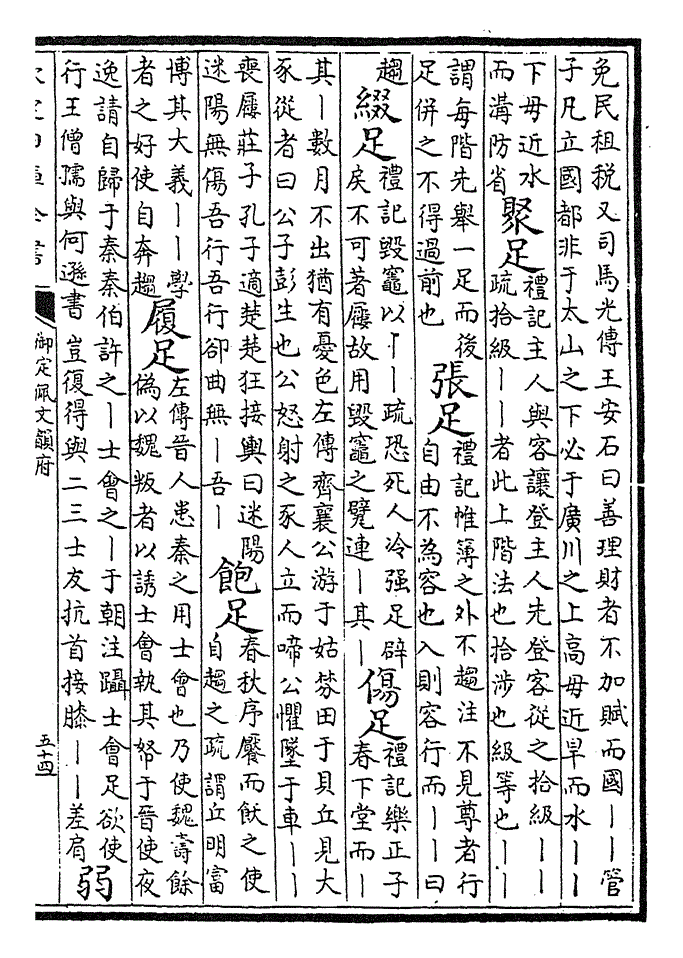 免民租税又司馬光傳王安石曰善理財者不加賦而國——管
子凡立國都非于太山之下必于廣川之上高毋近旱而水——
下毋近水
而溝防省
聚足
禮記主人與客讓登主人先登客從之拾級——
疏拾級——者此上階法也拾涉也級等也——
謂每階先舉一足而後
足併之不得過前也
張足
禮記惟簿之外不趨注不見尊者行
自由不為容也入則容行而——曰
趨
綴足
禮記毀竈以——疏恐死人冷强足辟
戾不可著屨故用毀竈之甓連—其—
傷足
禮記樂正子
春下堂而—
其—數月不出猶有憂色左傳齊襄公游于姑棼田于貝丘見大
豕從者曰公子彭生也公怒射之豕人立而啼公懼墜于車——
喪屨莊子孔子適楚楚狂接輿曰迷陽
迷陽無傷吾行吾行卻曲無—吾—
飽足
春秋序饜而飫之使
自趨之疏謂丘明富
博其大義——學
者之好使自奔趨
履足
左傳晉人患秦之用士會也乃使魏壽餘
偽以魏叛者以誘士會執其帑于晉使夜
逸請自歸于秦秦伯許之—士會之—于朝注躡士會足欲使
行王僧孺與何遜書豈復得與二三士友抗首接膝——差肩
弱
欽定四庫全書
御定佩文韻府
五十四